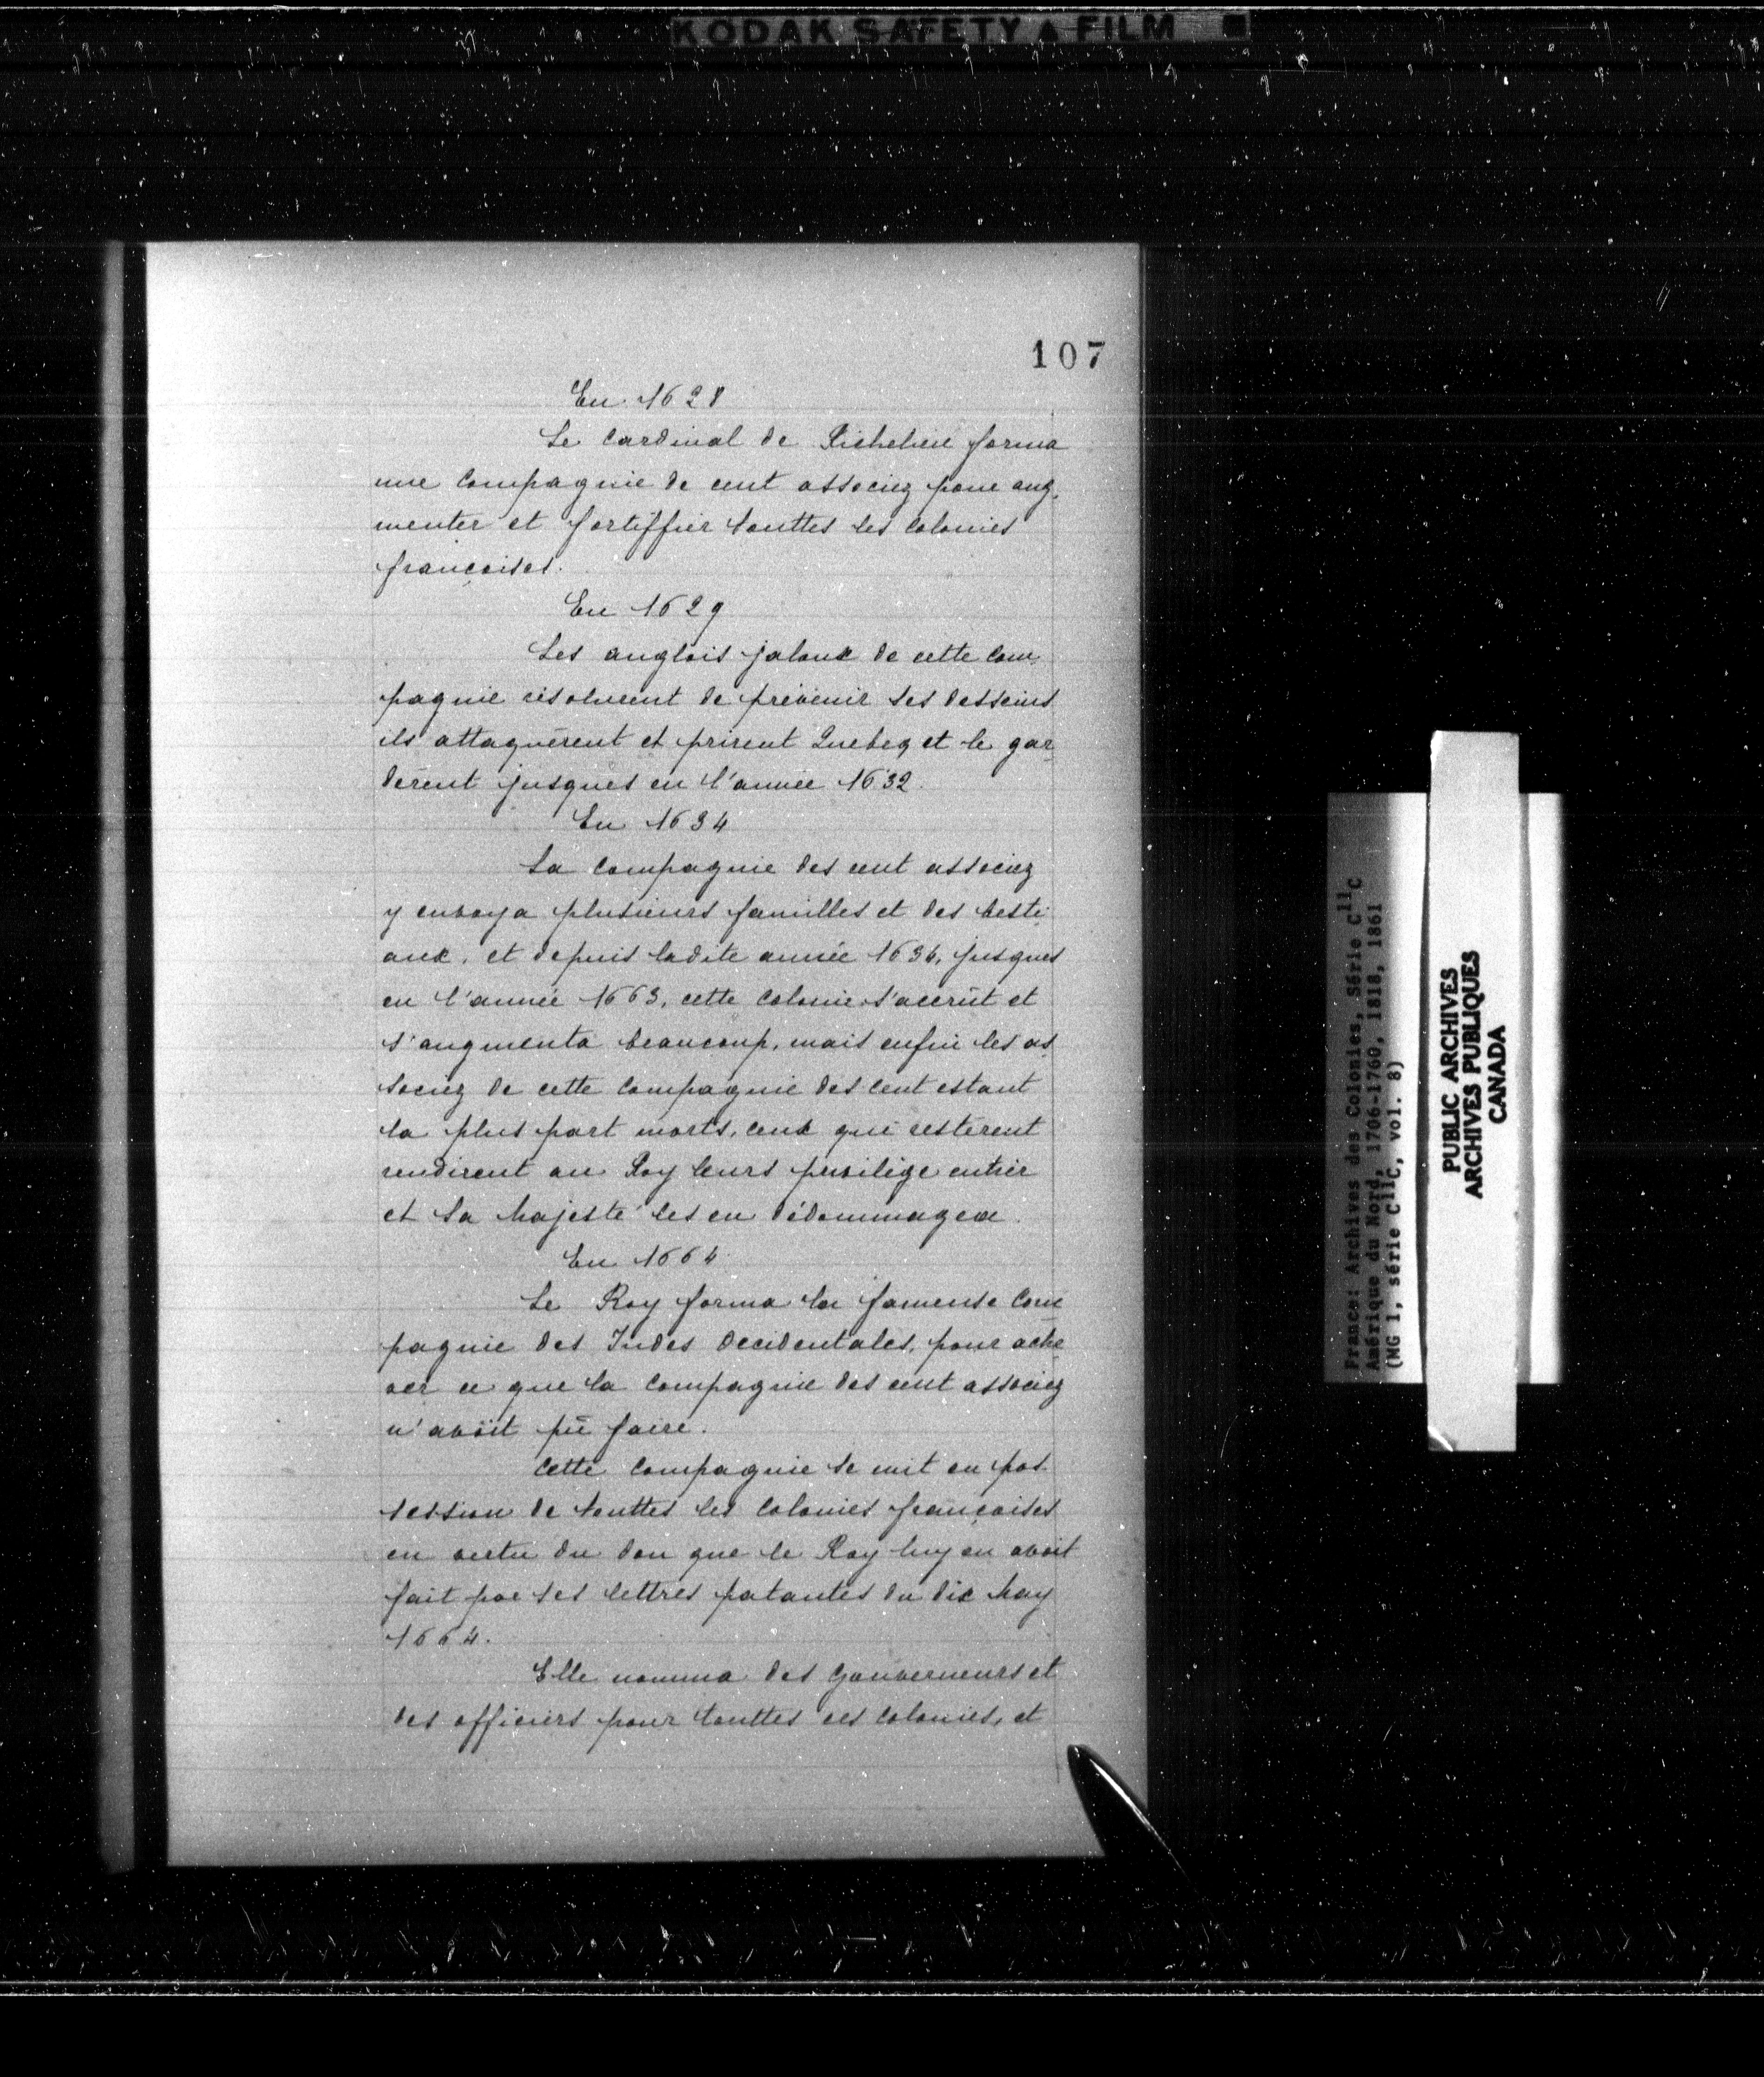 KODAK SAFETY ▲ FILM ■
107
En 1628
Le Cardinal de Richelieu forma
une Compagnie de cent associez pour aug,
menter et fortiffier touttes les Colonies
françoises.
En 1629
Les anglois jaloux de cette Com,
pagnie résolurent de prévenir ses desseins
ils attaquèrent et prirent Quebeq et le gar
dèrent jusques en l'année 1632.
En 1634
La Compagnie des cent associez
y envoya plusieurs familles et des besti
aux, et depuis ladite année 1634, jusques
en l'année 1663, cette Colonie s'accrût et
s'augmenta beaucoup, mais enfin les as
sociez de cette Compagnie des Cent estant
la plus part morts, ceux qui restèrent
rendirent au Roy leurs privilège entier
et Sa Majesté les en dédommagea.
En 1664
Le Roy forma la fameuse Com
pagnie des Indes Occidentales, pour ache
ver ce que la Compagnie des cent associez
n'avoit pû faire.
Cette Compagnie se mit en pos
session de touttes les Colonies françoises
en vertu du don que le Roy luy en avoit
fait par ses lettres patantes du dix May
1664.
Elle nomma des Gouverneurs et
des officiers pour touttes ces Colonies, et
France: Archives des Colonies, Série C11C
Amérique du Nord, 1706-1760, 1818, 1861
(MG 1, série C11C, vol. 8)
PUBLIC ARCHIVES
ARCHIVES PUBLIQUES
CANADA